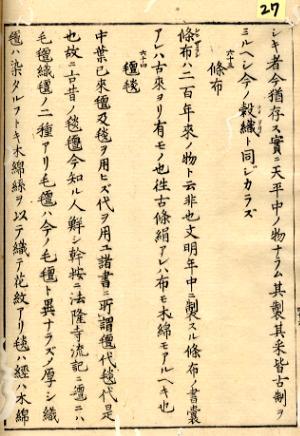 27
シキ者今猶存ス實ニ天平中ノ物ナラム其製其采皆古制ヲ
ミルヘシ今ノ縠織ト同ジカラズ
六十三
條布
條布ハ二百年來ノ物ト云非也文明年中ニ製スル條布ノ書囊
アレハ古來ヨリ有モノ也徃古條絹アレハ布モ木綿モアルヘキ也
六十四
氈毯
中葉已來氈及毯ヲ用ヒズ代ヲ用ユ諸書ニ所謂氈代毯代是
也故ニ古昔ノ毯氈今知ル人鮮シ幹按ニ法隆寺流記ニ氈ニハ
毛氈織氈ノ二種アリ毛氈ハ今ノ毛氈ト異ナラズノ厚シ織
氈ハ染タルフトキ木綿絲ヲ以テ織テ花紋アリ毯ハ經ハ木綿